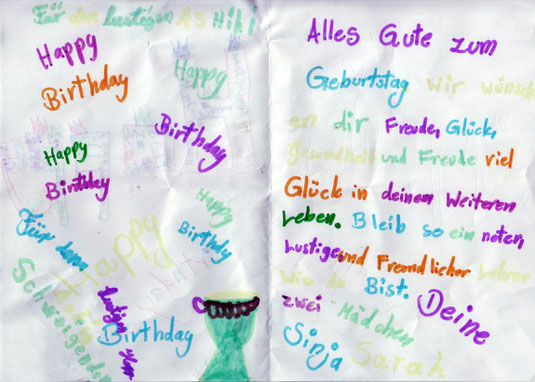 Für den lustigen
Happy
Birthday
Happy
Birthday
Happy
Birthday
Happy
Birthdy
Für den
Happy
Schwiegenden
lustigen
Birthday
Alles Gute zum
Geburtstag wir wünsch
en dir Freude, Glück,
Gesundheit und Freude viel
Glück in deinem Weiteren
Leben. Bleib so ein neten,
Lustige und Freundlicher Lehrer
wie du Bist. Deine
zwei Mädchen
Sinja Sarah